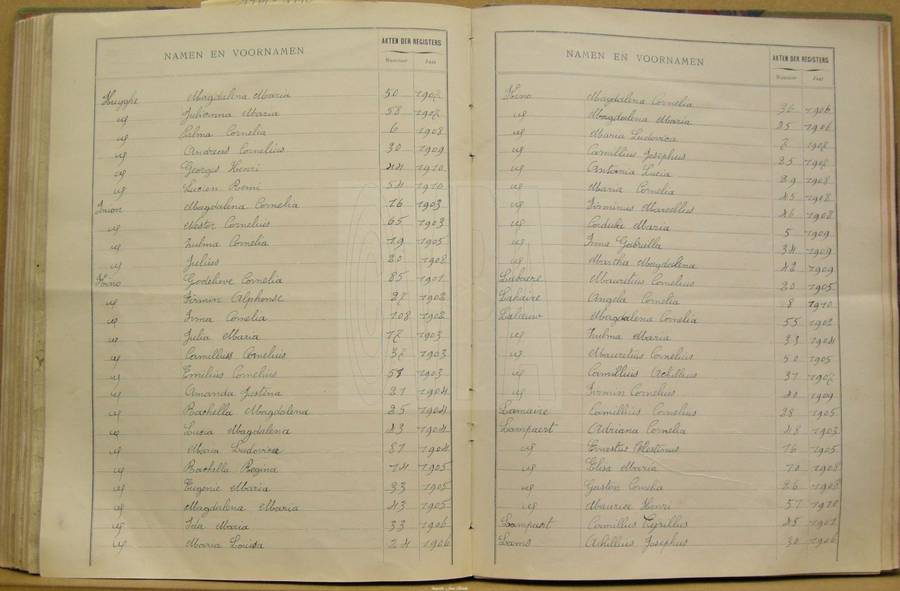 NAMEN EN VOORNAMEN AKTEN DER REGISTERS
Nummer Jaar
Huyghe Magdalena Maria 50 1907
id Julienna Maria 58 1907
id Palma Cornelia 6 1908
id Andreas Cornelius 30 1909
id Georges Henri 44 1910
id Lucien Remi 54 1910
Magdalena Cornelia 16 1903
id Nestor Cornelius 65 1903
id Zulma Cornelia 19 1905
id Julius 20 1908
Godelieve Cornelia 85 1901
id Firmin Alphonse 27 1902
id Irma Cornelia 108 1902
id Julia Maria 17 1903
id Camillius Cornelius 37 1903
id Emilius Cornelius 57 1903
id Amanda Justina 21 1904
id Rachella Magdalena 25 1904
id Lucia Magdalena 43 1904
id Maria Ludovica 87 1904
id Rachella Regina 14 1905
id Eugenie Maria 33 1905
id Magdalena Maria 43 1905
id Ida Maria 33 1906
id Maria Louisa 24 1906
NAMEN EN VOORNAMEN AKTEN DER REGISTERS
Nummer Jaar
Magdalena Cornelia 36 1906
id Magdalena Maria 25 1906
id Maria Ludovica 7 1907
id Camillius Josephus 25 1907
id Antonia Lucia 29 1908
id Maria Cornelia 45 1908
id Firminus Marcellus 46 1908
id Maria 5 1909
id Irma Gabriella 34 1909
id Martha Magdalena 42 1909
Labaere Mauritius Cornelius 20 1905
Lahaire Angela Cornelia 8 1910
Laleeuw Magdalena Cornelia 55 1902
id Zulma Maria 33 1904
id Mauritius Cornelius 50 1905
id Camillius Achillius 37 1907
id Firmin Cornelius 40 1909
Lamaire Camillius Cornelius 28 1905
Lampaert Adriana Cornelia 48 1903
id Ernestus Celestinus 16 1905
id Elisa Maria 70 1908
id Gaston Cornelia 26 1908
id Maurice Henri 57 1910
Lampaert Camillus Cyrillus 45 1901
Lams Achillius Josephus 30 1906